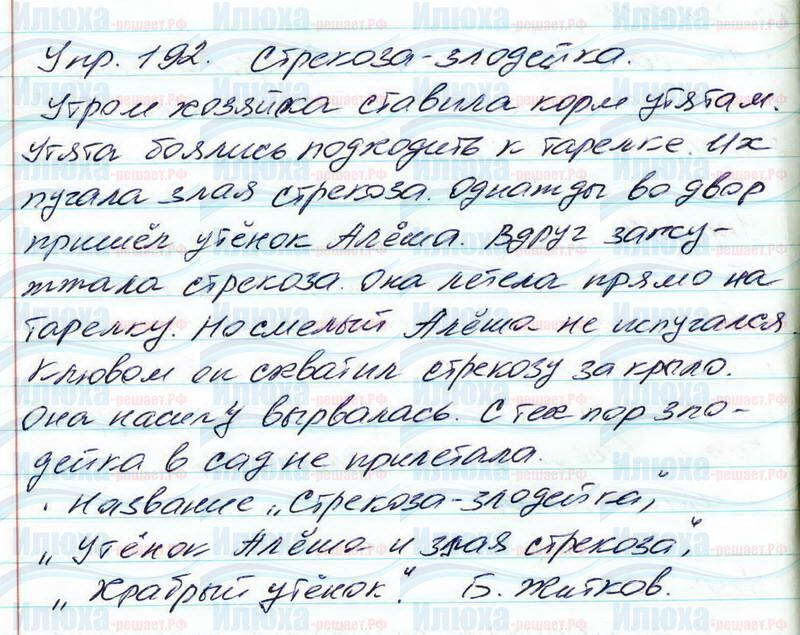 Упр. 192. Стрекоза-злодейка.
Утром хозяйка ставила корм утятам.
Утята боялись подходить к тарелке. Их
пугала злая стрекоза. Однажды во двор
пришёл утёнок Алёша. Вдруг зажу-
жжала стрекоза. Она летела прямо на
тарелку. Но смелый Алёша не испугался.
Клювом он схватил стрекозу за крыло.
Она насилу вырвалась. С тех пор зло-
дейка в сад не прилетала.
Название „Стрекоза-злодейка",
„Утёнок Алёша и злая стрекоза",
„Храбрый утёнок". Б. Житков.
Илюха-решает.РФ